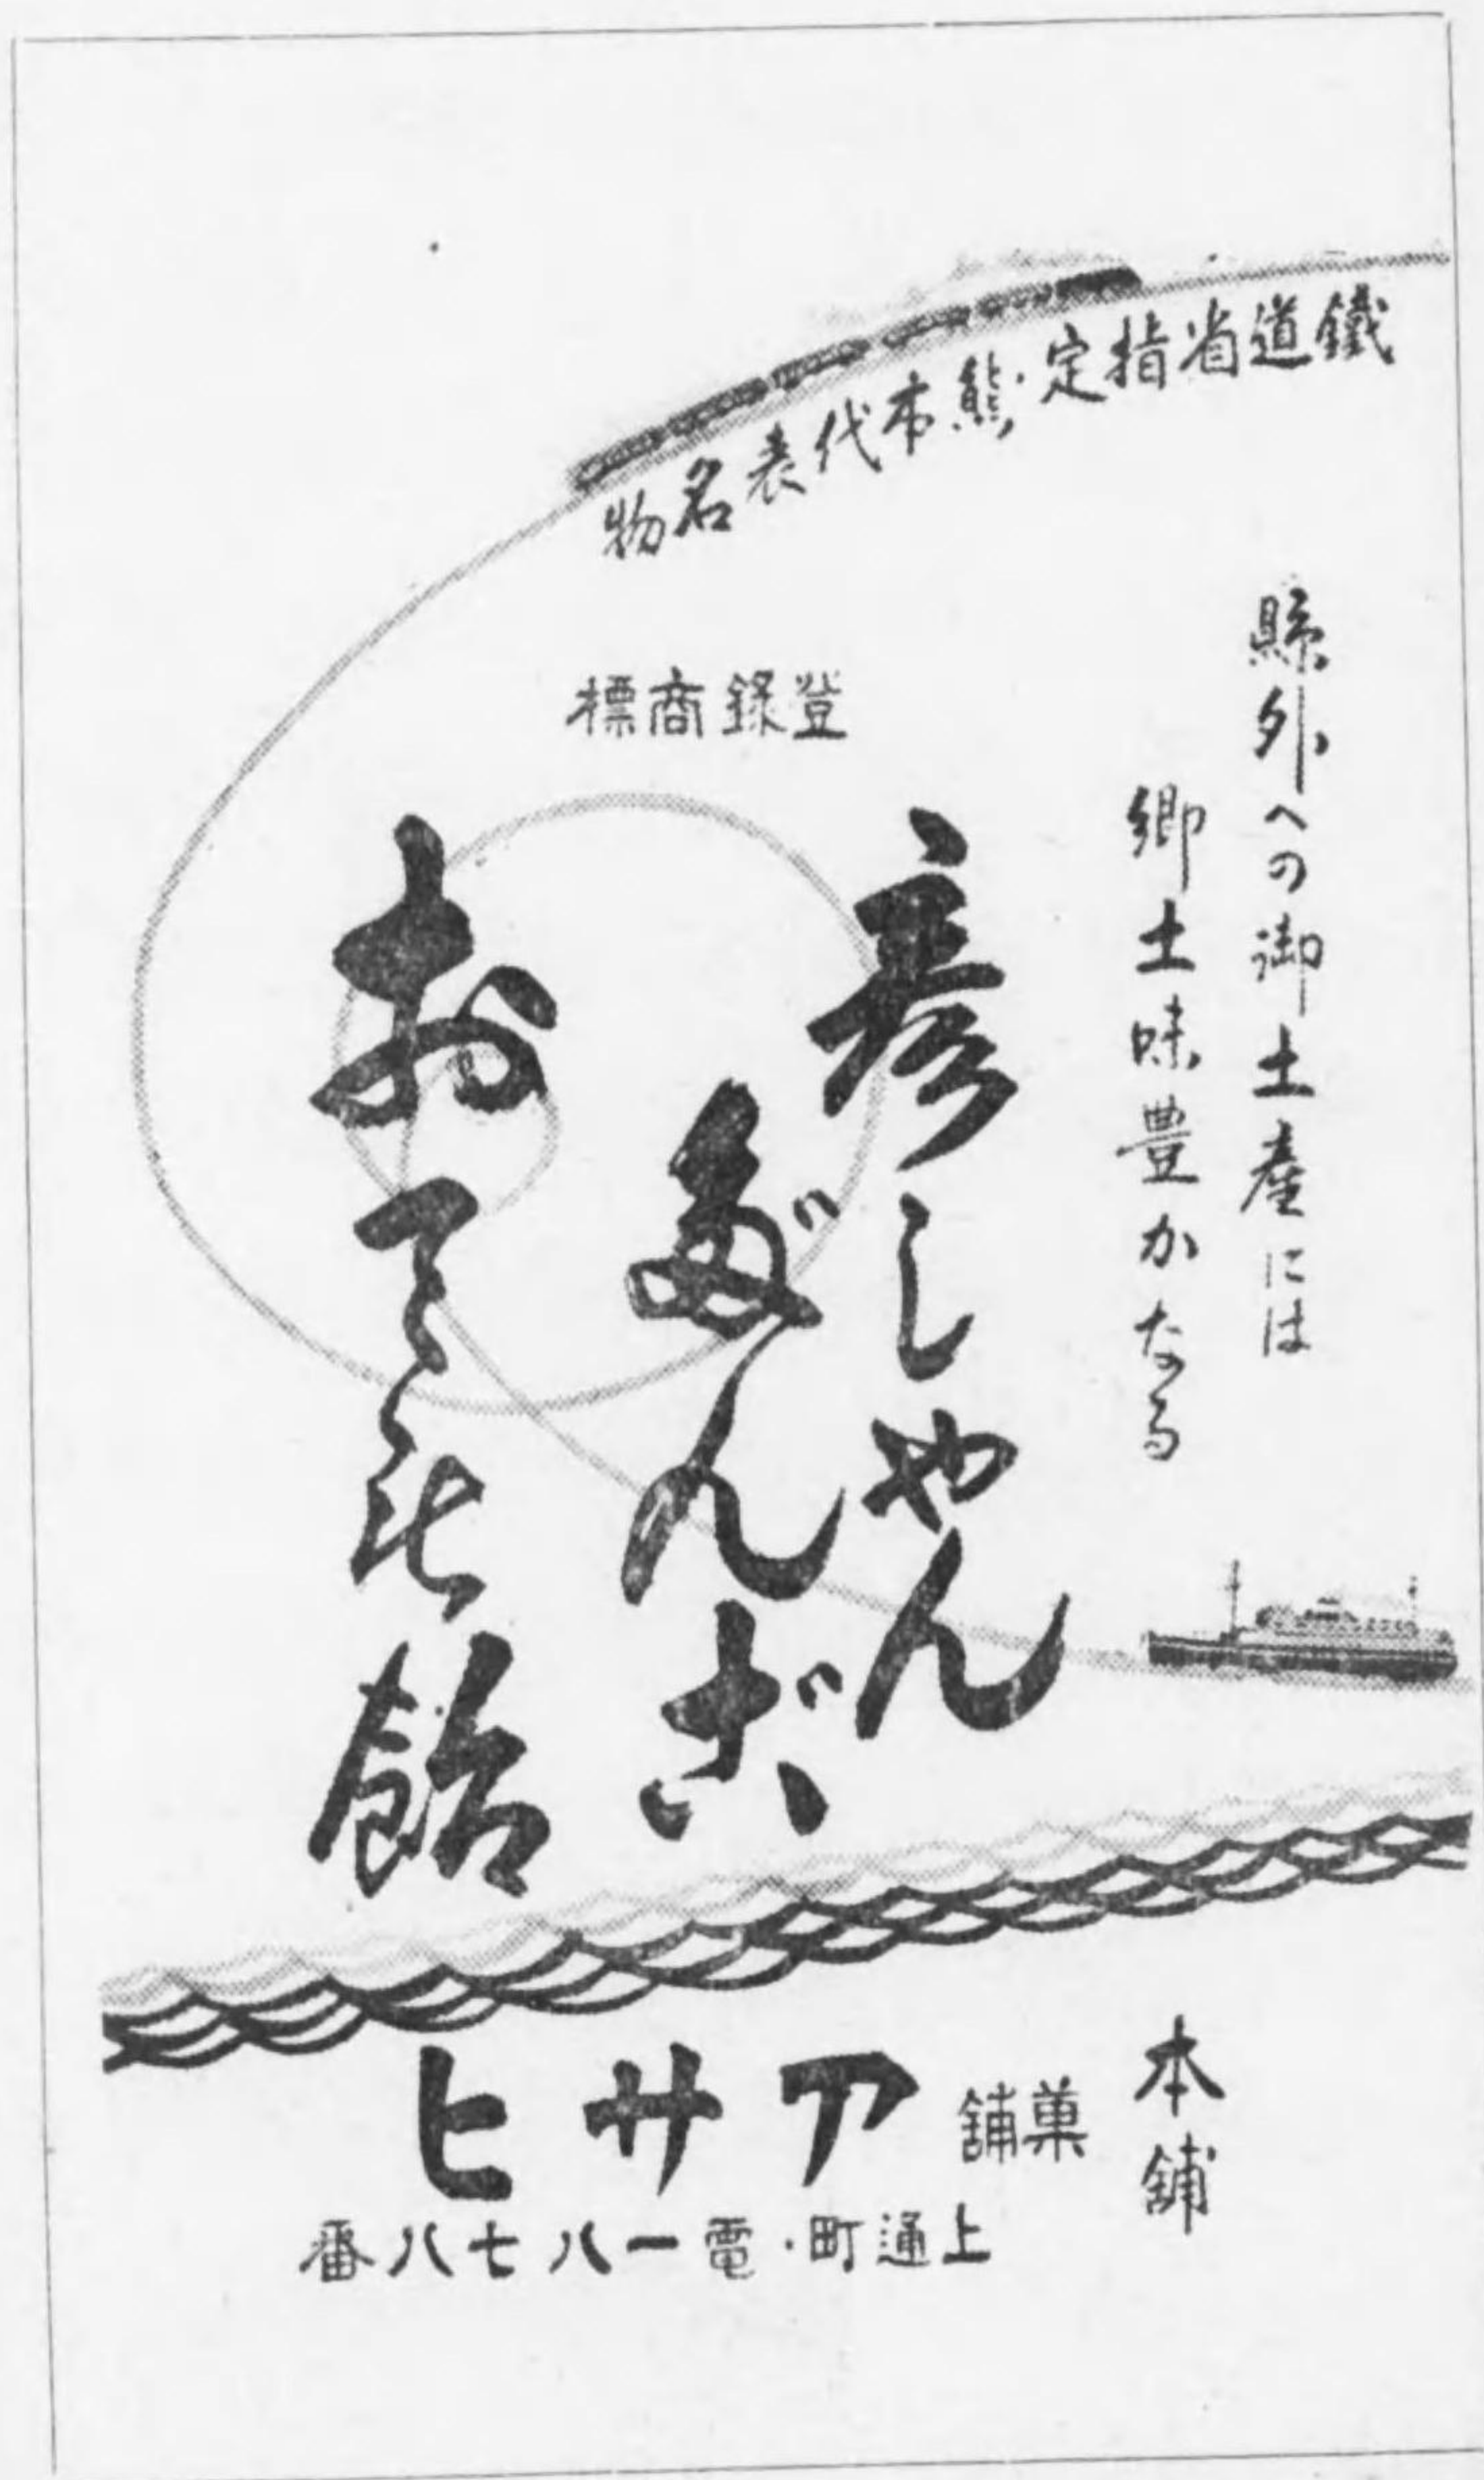 鐵道省指定・熊本代表名物
縣外への御土産には
郷土味豊かなる
登錄商標
彦しやん
だんご
おても飴
本舗
菓舗 アサヒ
上通町・電一八七八番